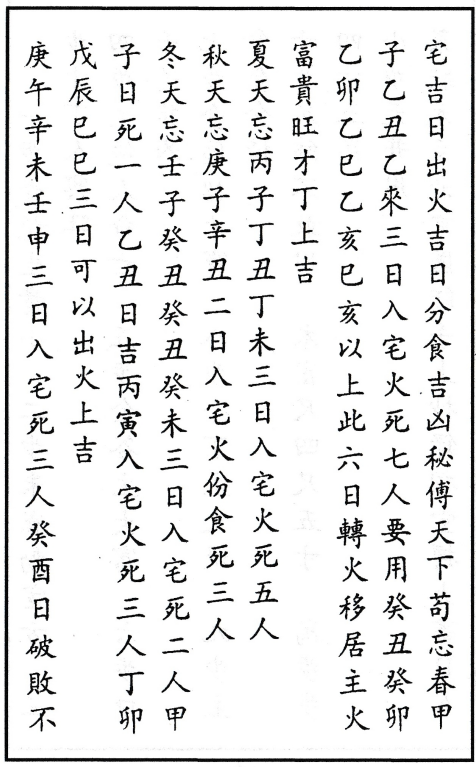 宅吉日出火吉日分食吉凶秘傅天下苟忘春甲
子乙丑乙來三日入宅火死七人要用癸丑癸卯
乙卯乙巳乙亥巳亥以上此六日轉火移居主火
富貴旺才丁上吉
夏天忘丙子丁丑丁未三日入宅火死五人
秋天忘庚子辛丑二日入宅火份食死三人
冬天忘壬子癸丑癸丑癸未三日入宅死二人甲
子日死一人乙丑日吉丙寅入宅火死三人丁卯
戊辰巳巳三日可以出火上吉
庚午辛未壬申三日入宅死三人癸酉日破敗不